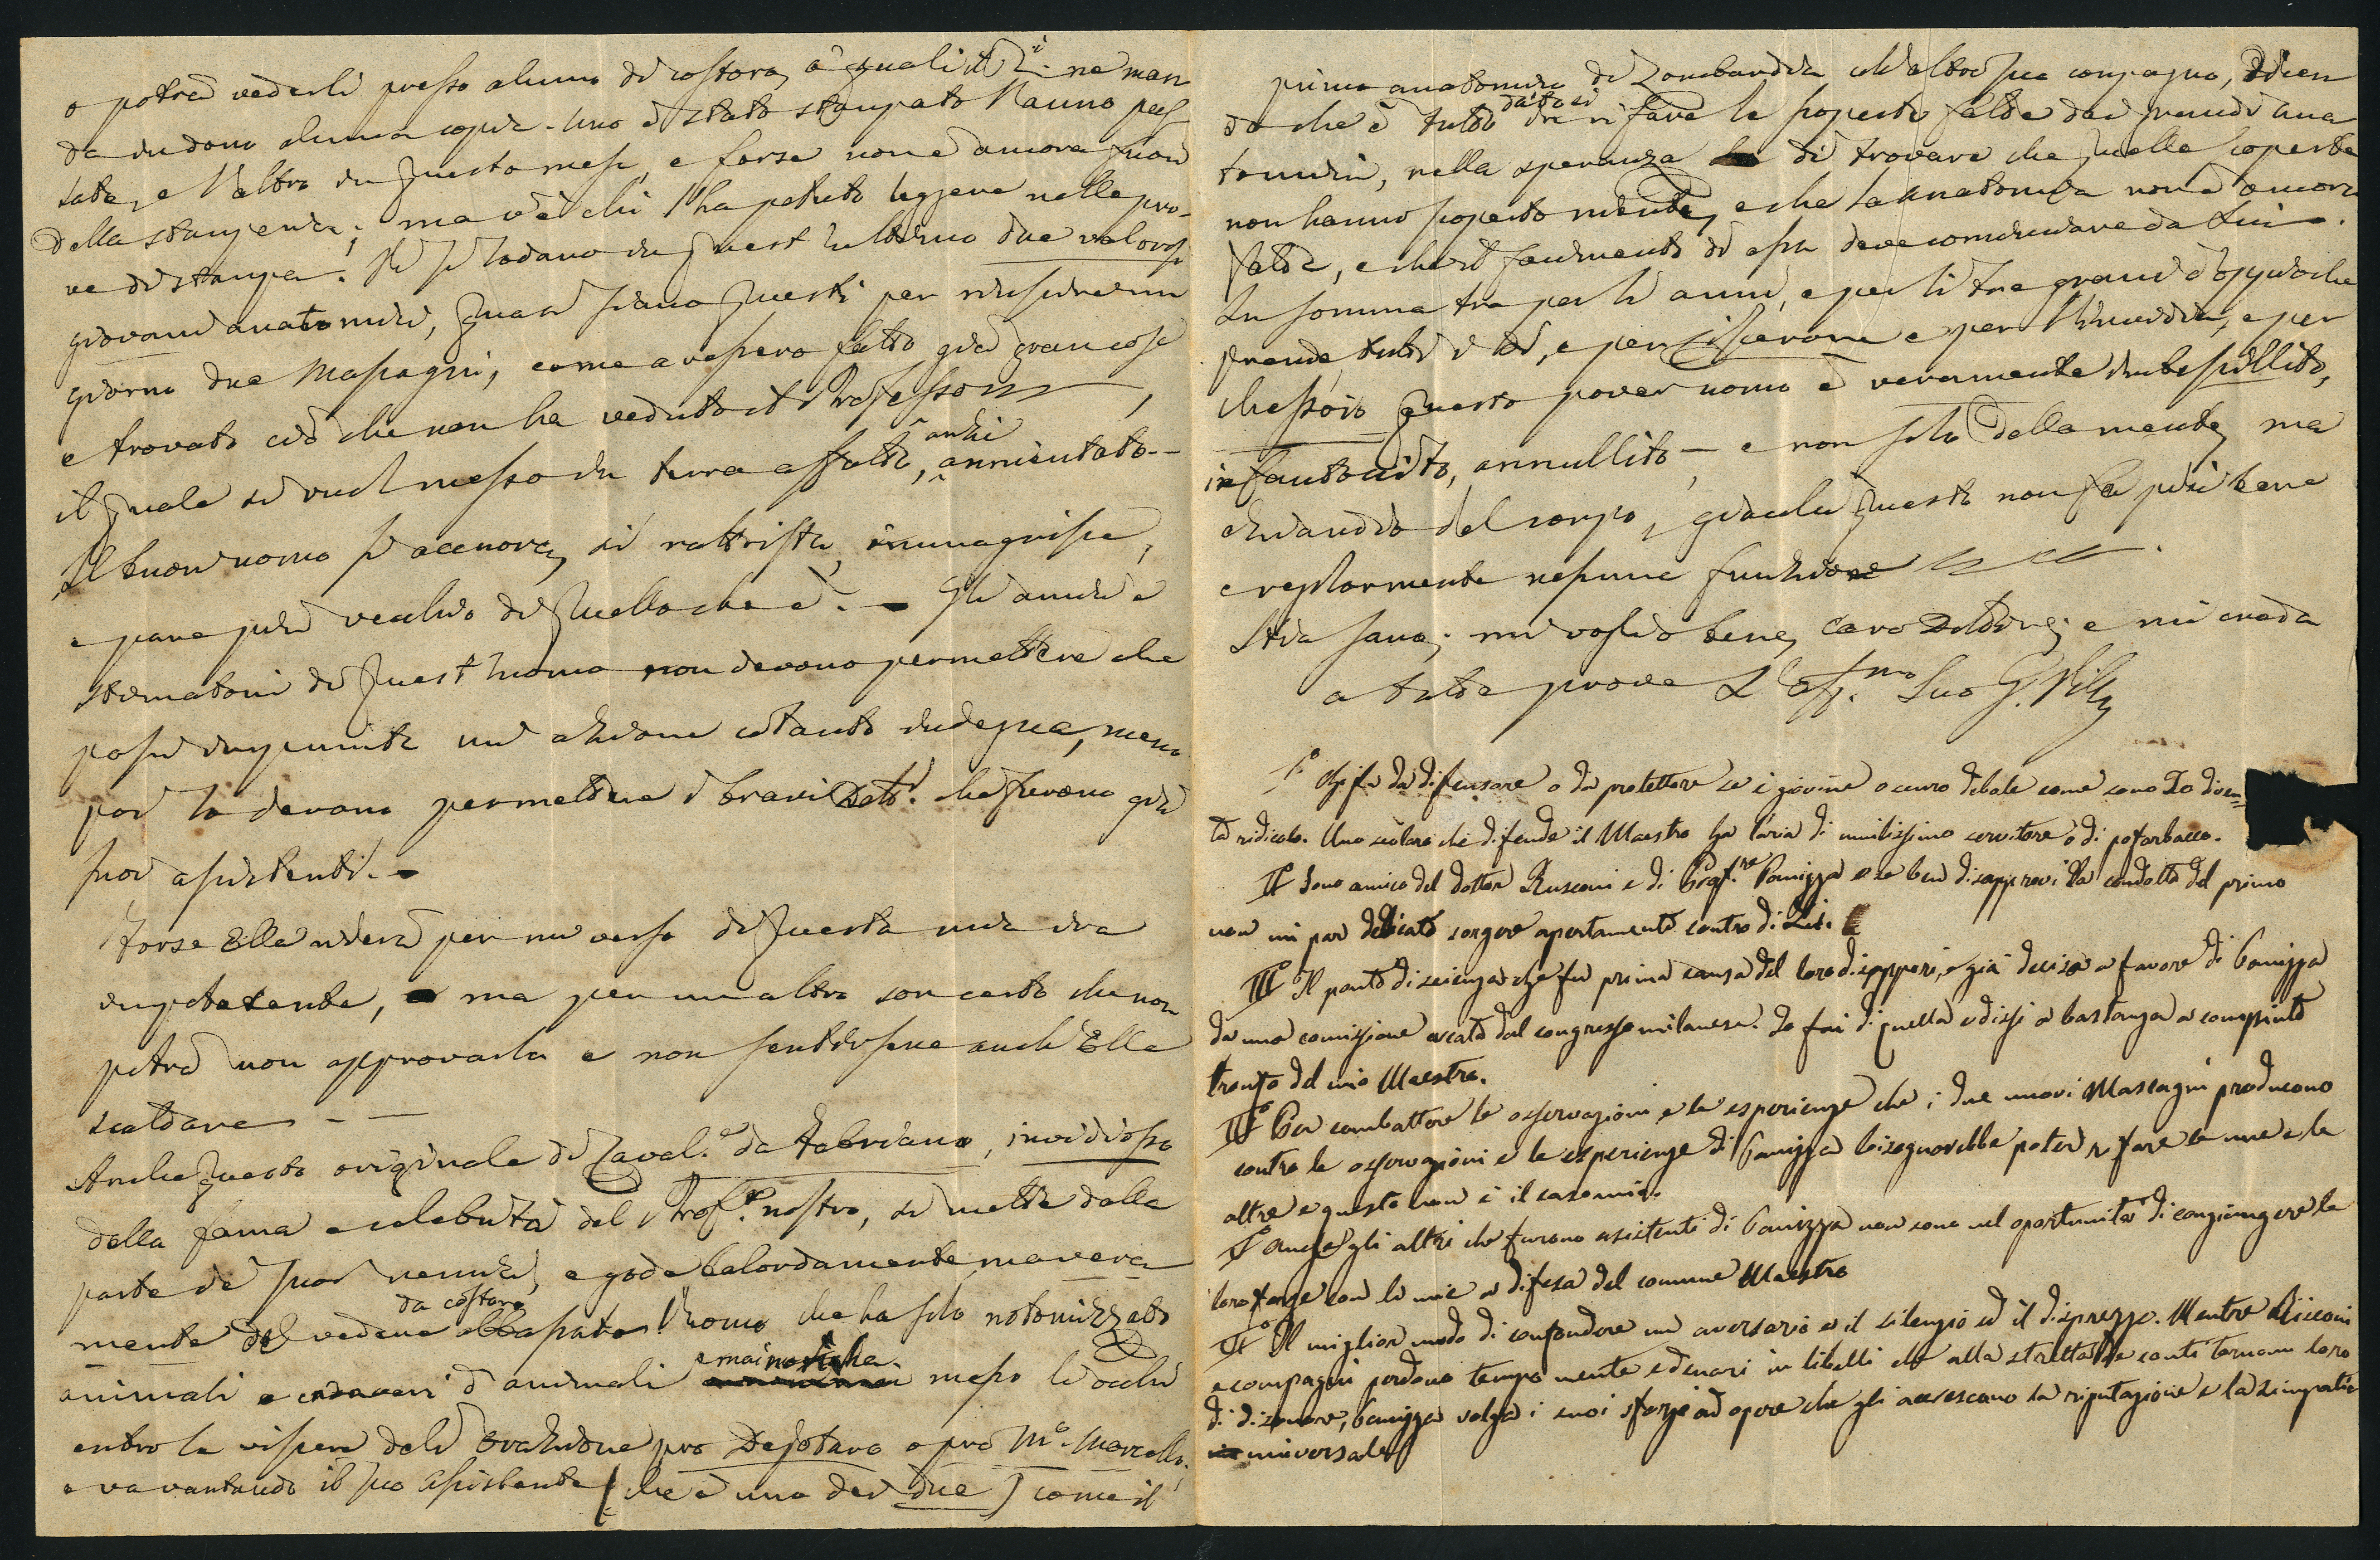 o potrà vederli presso alcuno di costoro, a' quali il R. ne man
da in dono alcuna copia. Uno è stato stampato l'anno pas
sato, e l'altro in questo mese, e forse non è ancora fuori
della stamperia; ma v'è chi l'ha potuto leggere nelle pro-
ve di stampa. Vi si lodano in quest'ultimo due valorosi
giovani anatomici, quasi siano questi per riuscire un
giorno due Mascagni, come avessero fatto già gran cose
e trovato ciò che non ha veduto il Professore,
il quale si vuol messo in terra affatto, anzi annientato.-
Il buon uomo si accuora, si rattrista, immagrisce,
e pare più vecchio di quello che è. - Gli amici e
stimatori di quest'uomo non devono permettere che
passi impunita un'azione cotanto indegna, meno
poi lo devono permettere i bravi Dott.i che furono già
suoi assistenti. -
Forse Ella riderà per un verso di questa mia ira
impotente, ma per un altro son certo che non
potrà non approvarla e non sentirsene anch'Ella
scaldare - -
Anche questo originale di Caval.e da Fabriano, invidioso
della fama e celebrità del Prof.e nostro, si mette dalla
parte de' suoi nemici, e gode balordamente ma vera
mente del vedere da costoro abbassato l'uomo che ha solo notomizzato
animali e cadaveri d'animali e mai messo li occhi
entro le viscere dell'Orazione pro Dejotaro o pro M.o Marcello,
e va vantando il suo Assistente (che è uno dei due) come il
primo anatomico di Lombardia coll'altro suo compagno, dicen
do che è tutto da rifare le scoperte fatte dai grandi ana
tomici, nella speranza di trovare che quelle scoperte
non hanno scoperto niente, e che la anatomia non è ancora
fatta, e che il fondamento di essa deve cominciare da Lui.
In somma tra per li anni, e per li tre grani d'oppio che
prende tutti i dì, e per Cicerone e per l'invidia, e per
che so io questo pover uomo è veramente imbecillito,
infantocciato, annullito - e non solo della mente, ma
eziandio del corpo, giacchè questo non fa più bene
e regolarmente nessuna funzione
Stia sano; mi voglia bene, caro Dottore; e mi creda
a tutte prove L'aff.mo Suo G.
I.o Chi si fa da difensore o da protettore se è giovine oscuro debole come sono Io diven-
ta ridicolo. Uno scolaro che difende il Maestro ha l'aria di umilissimo servitore o di
II.o Sono amico del dottor Rusconi e di Prof.re Panizza e se ben disapprovi la condotta del primo
non mi par delicato sorgere apertamente contro di Lui.
III.o Il punto di scienza che fu prima causa del loro dissapori, è già deciso a favore di Panizza
da una comissione creata dal congresso milanese. Io fui di quella e dissi a bastanza a compiuto
trionfo del mio Maestro.
IV.o Per combattere le osservazioni e le esperienze che i due nuovi Mascagni producono
contro le osservazioni e le esperienze di Panizza bisognerebbe poter rifare le une e le
altre e questo non è il caso mio.
V.o Anche gli altri che furono assistenti di Panizza non sono nel oportunità di congiungere le
loro forze con le mie a difesa del comune Maestro
VI.o Il miglior modo di confondere un aversario è il silenzio ed il disprezzo. Mentre Rusconi
e compagni perdono tempo mente e denari in libelli che alla stretta de conti tornam loro
di disonore, Panizza volga i suoi sforzi ad opere che gli accrescano la riputazione e la simpatia
universale